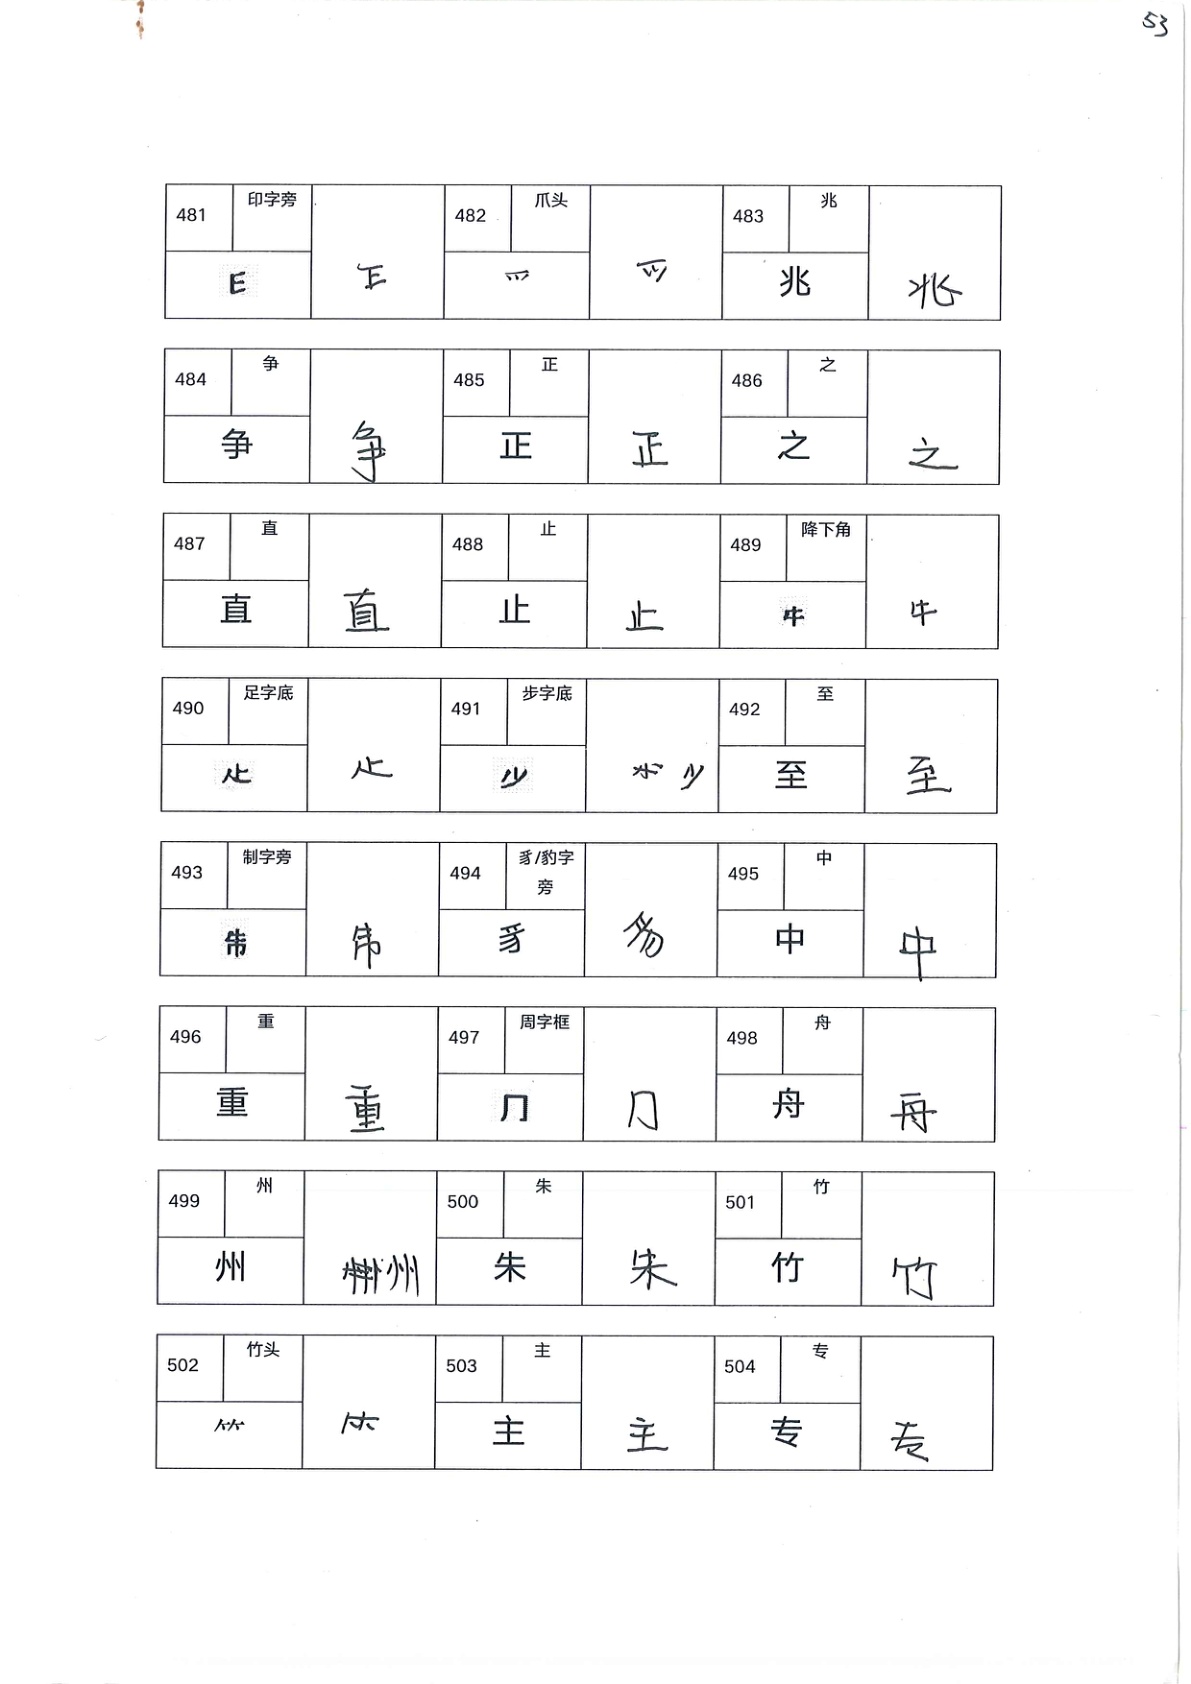 53
481 印字旁 482 爪头 483 兆
爫 爫 兆 兆
484 争 485 正 486 之
争 争 正 正 之 之
487 直 488 止 489 降下角
直 直 止 止 㐄 㐄
490 足字底 491 步字底 492 至
龰 龰 少 至 至
493 制字旁 494 豸/豹字旁 495 中
豸 中 中
496 重 497 周字框 498 舟
重 重 ⺆ ⺆ 舟 舟
499 州 500 朱 501 竹
州 州 朱 朱 竹 竹
502 竹头 503 主 504 专
⺮ ⺮ 主 主 专 专